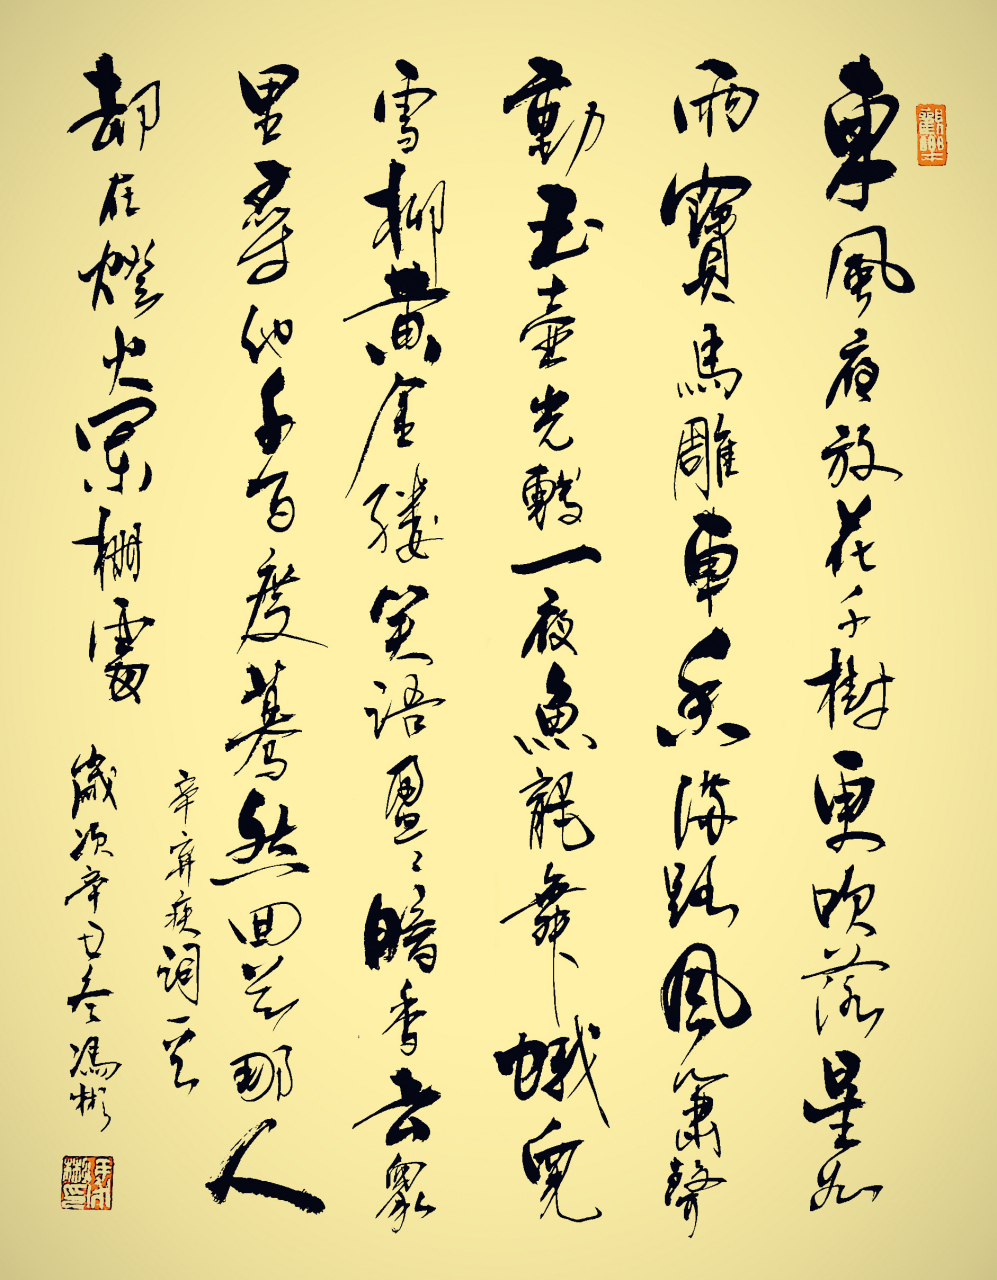 東風夜放花千樹更吹落星如
雨寶馬雕車香滿路鳳簫聲
動玉壺光轉一夜魚龍舞蛾兒
雪柳黄金縷笑語盈〻暗香去眾
里尋他千百度驀然回首那人
却在燈火闌柵處
辛弃疾詞一首
歲次辛巳冬馮彬